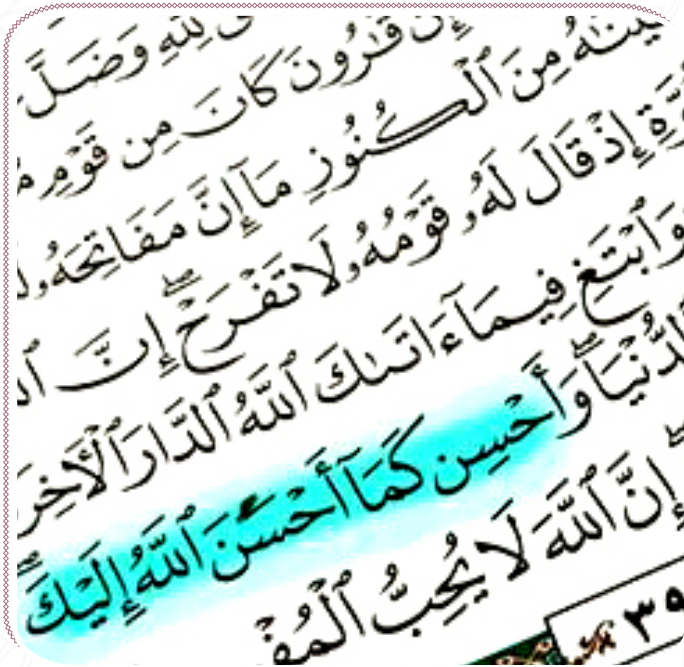 لِلَّهِ وَضَلَّ
إِنَّ قَٰرُونَ كَانَ مِن قَوْمِ
مِنَ ٱلْكُنُوزِ مَآ إِنَّ مَفَاتِحَهُۥ
إِذْ قَالَ لَهُۥ قَوْمُهُۥ لَا تَفْرَحْ ۖ إِنَّ
وَٱبْتَغِ فِيمَآ ءَاتَىٰكَ ٱللَّهُ ٱلدَّارَ ٱلْأَخِرَ
ٱلدُّنْيَا ۖ وَأَحْسِن كَمَآ أَحْسَنَ ٱللَّهُ إِلَيْكَ ۖ
إِنَّ ٱللَّهَ لَا يُحِبُّ ٱلْمُفْ
٣٩